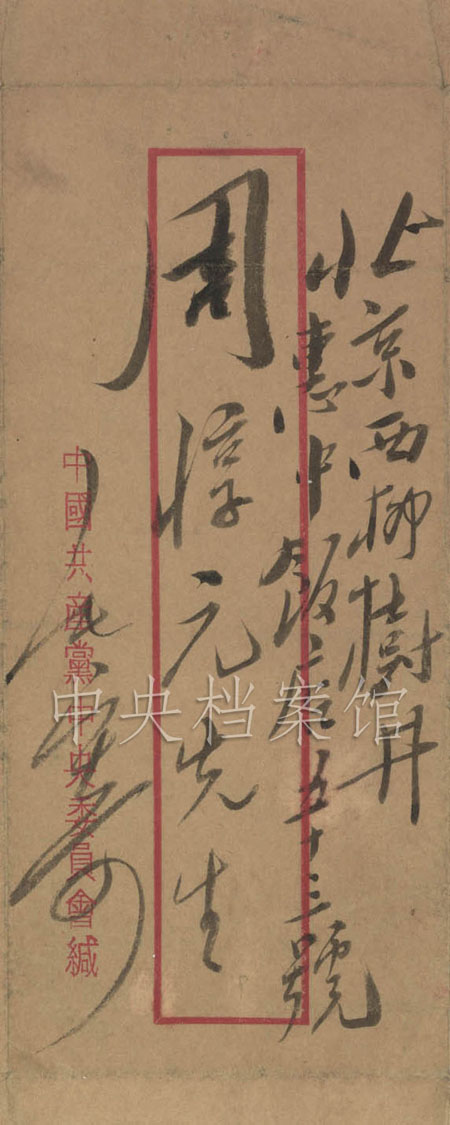 北京西柳樹井
惠中飯店五十三號
周惇元先生
中國共產黨中央委員會緘
中央档案馆